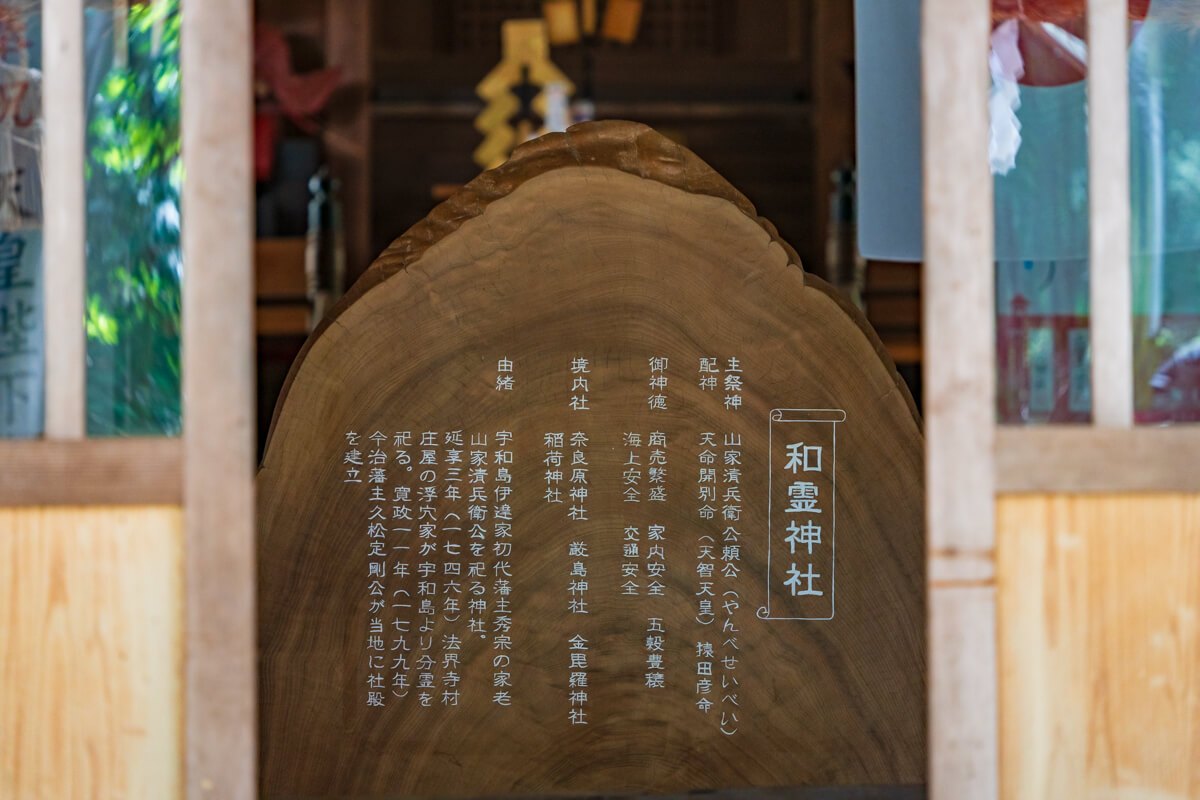 和霊神社
主祭神　山家清兵衛公頼公（やんべせいべい）
配神　天命開別命（天智天皇）　猿田彦命
御神徳　商売繁盛　家内安全　五穀豊穣
海上安全　交通安全
境内社　奈良原神社　厳島神社　金毘羅神社
稲荷神社
由緒　宇和島伊達家初代藩主秀宗の家老
山家清兵衛公を祀る神社。
延享三年（一七四六年）法界寺村
庄屋の浮穴家が宇和島より分霊を
祀る。寛政一一年（一七九九年）
今治藩主久松定剛公が当地に社殿
を建立
皇陛下